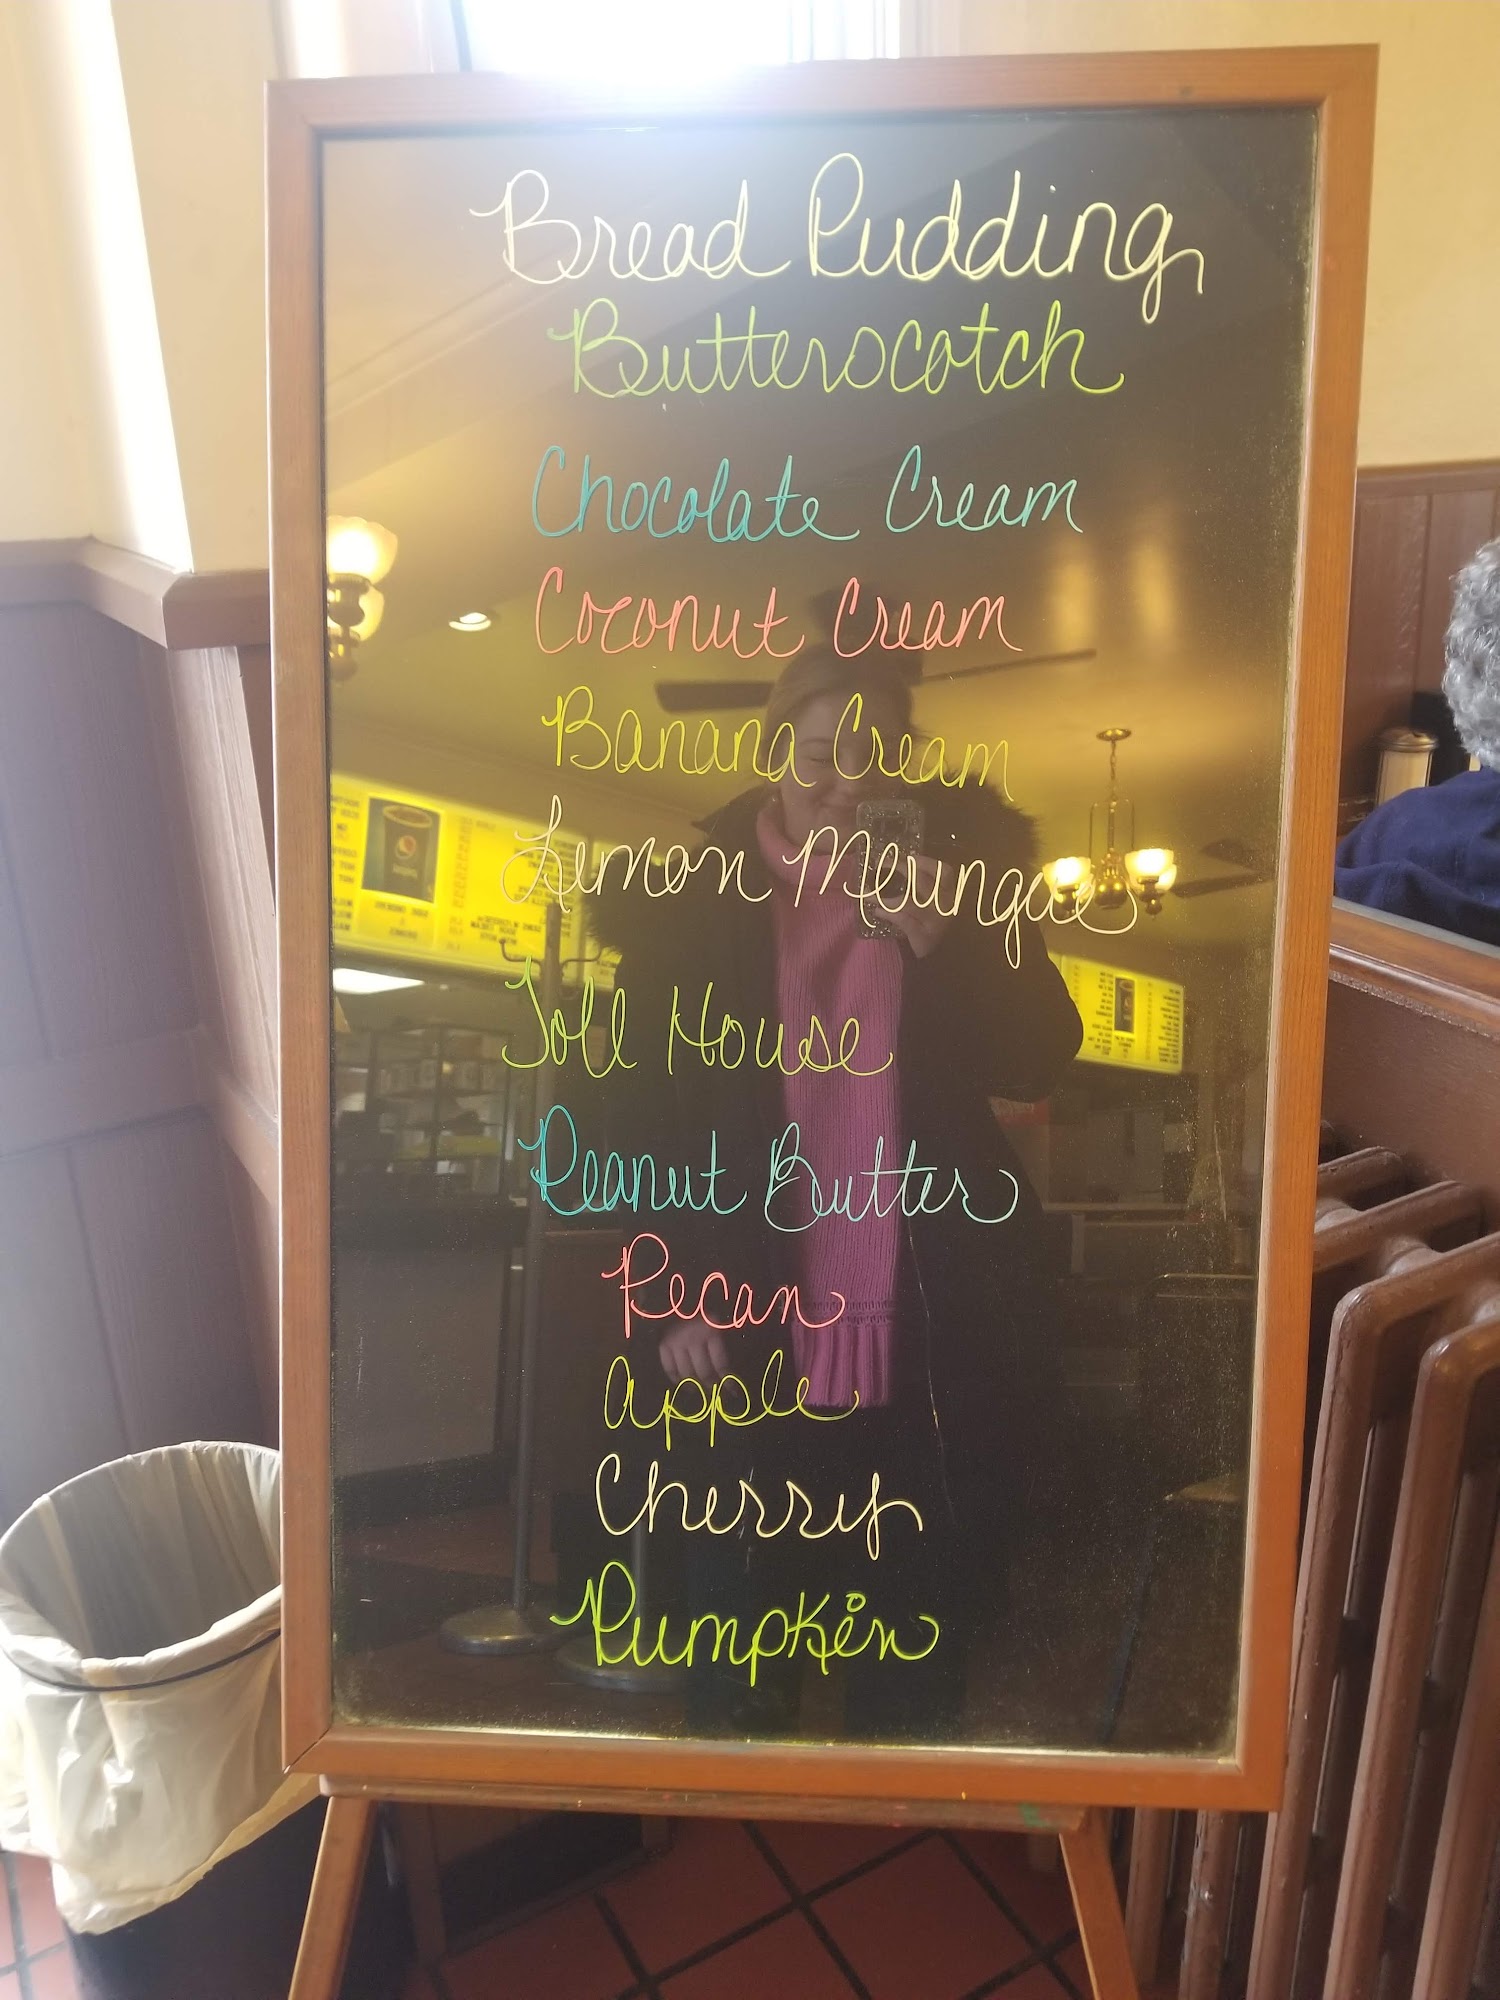 Bread Pudding
Butterscotch
Chocolate Cream
Coconut Cream
Banana Cream
Lemon Meringue
Toll House
Peanut Butter
Pecan
apple
Cherry
Pumpkin